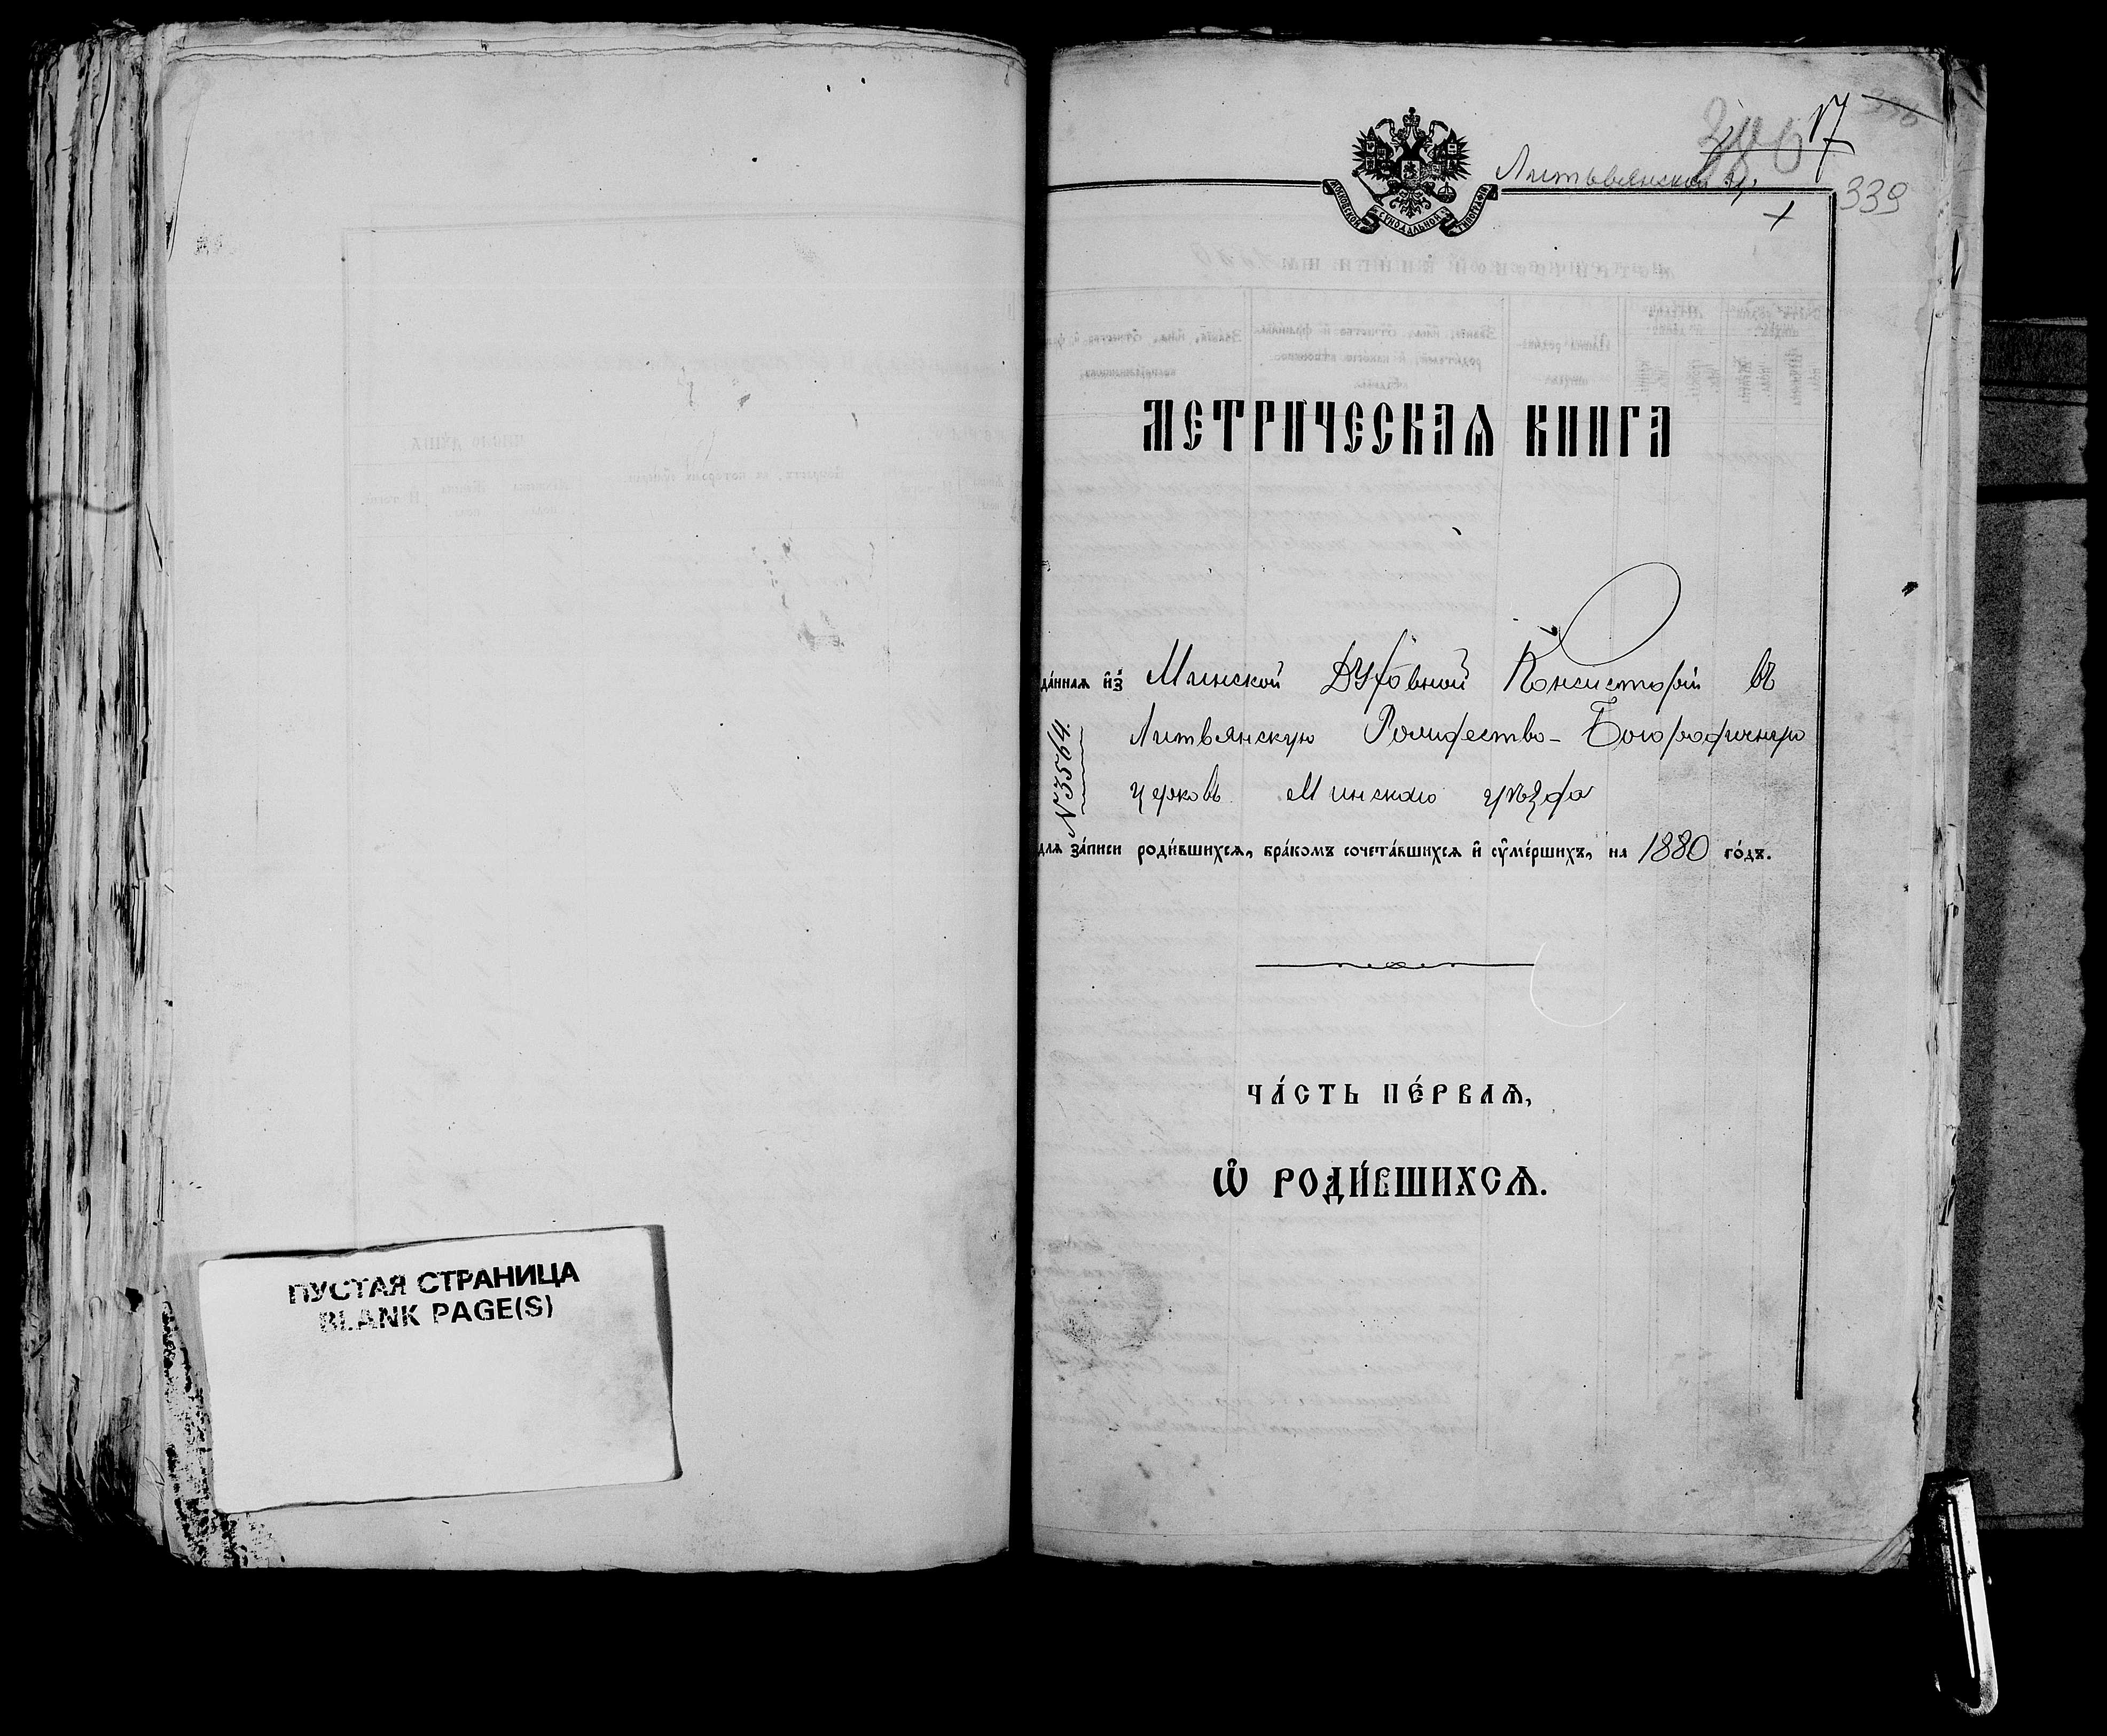 ПУСТАЯ СТРАНИЦА
BLANK PAGE(S)
17
Литвянской ц.
339
МОСКОВСКОЙ СѴНОДАЛЬНОЙ ТИПОГРАФІИ
МЕТРИЧЕСКАѦ КНИГА
да́нная и҆з̾ Минской Духовной Консисторіи въ
Литвянскую Рождество-Богородичную
церковь Минскаго уѣзда
№ 3564.
для за́писи роди́вшихся, бра́комъ сочета́вшихся и҆ ᲂу҆ме́ршихъ, на 1880 го́дъ.
ЧА́СТЬ ПЕ́РВАѦ,
Ѽ РОДИ́ВШИХСѦ.